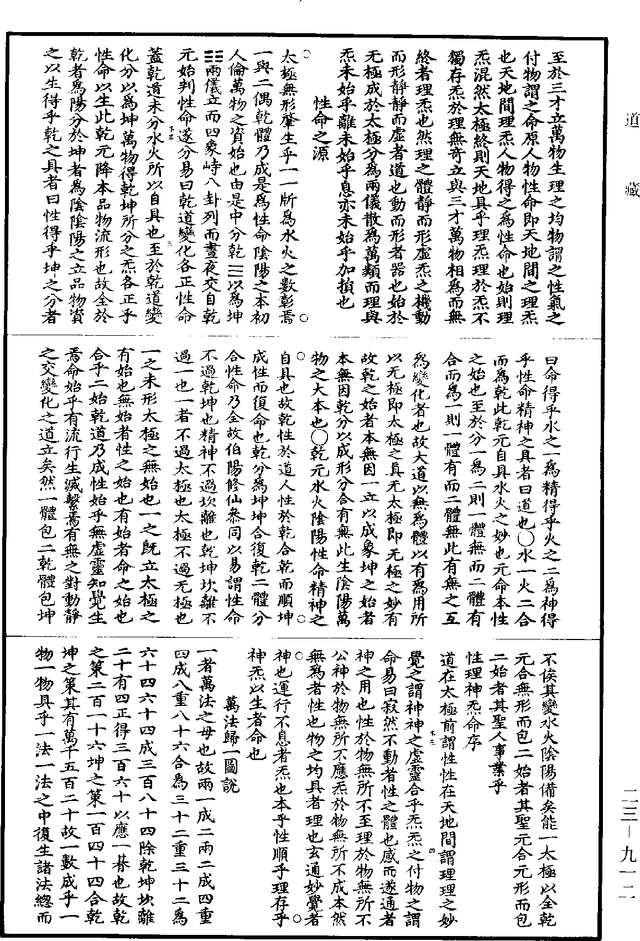 道藏
至於三才立萬物生理之均物謂之性氣之
付物謂之命原人物性命即天地間之理炁
也天地間理炁人物得之為性命也始則理
炁混然太極終則天地具乎理炁理於炁不
獨存炁於理無奇立與三才萬物相為而無
終者理炁也然理之體靜而形虛炁之機動
而形靜靜而虛者道也動而形者器也始於
無極成於太極分為兩儀散為萬類而理與
炁未始乎離未始乎息亦未始乎加損也
性命之源
太極無形肇生乎一一版為水火之數彰焉
一與二偶乾體乃成是為性命陰陽之本初
人倫萬物之資始也由是中分乾☰以為坤
☷兩儀立而四象峙八卦列而晝夜交自乾
元始判性命遂分易曰乾道變化各正性命
蓋乾道未分水火所以自具也至於乾道變
化分以為坤萬物得乾坤所分之炁各正乎
性命以生此乾元降本品物流形也故全於
乾者為陽分於坤者為陰陰陽之立品物資
之以生得乎乾之具者曰性得乎坤之分者
曰命得乎水之一為精得乎火之二為神得
乎性命精神之具者曰道也○水一火二合
而為乾此乾元自具水火之妙也元命本性
之始也至於分一為二則一體無而二體有
合而為一則一體有而二體無此有無之互
為變化者也故大道以無為體以有為用所
以無極即太極之真无太極即無極之妙有
故乾之始者本無因一立以成象坤之始者
本無因乾分以成形分合有無此生陰陽萬
物之大本也○乾元水火陰陽性命精神之
自具也故乾性於道人性於乾合乾而順坤
成性而復命也乾分為坤坤合復乾二體分
合性命乃全故伯陽修仙參同以易謂性命
不過乾坤也精神不過坎離也乾坤坎離不
過一也一者不過太極也太極不過無極也
一之未形太極之無始也一之既立太極之
有始也無始者性之始也有始者命之始也
合乎二始乾道乃成性始乎無虛靈知覺生
焉命始乎有流行生滅繫焉有無之對動靜
之交變化之道立矣然一體包二乾體包坤
不俟其變水火陰陽備矣能一太極以全乾
元合無形而包二始者其聖元合元形而包
二始者其聖人事業乎
性理神炁命序
道在太極前謂性性在天地間謂理理之妙
覺之謂神神之虛靈合乎炁炁之付物之謂
命易曰寂然不動者性之體也感而遂通者
神之用也性於物無所不至理於物無所不
公神於物無所不應炁於物無所不成本然
無為者性也物之均具者理也玄通妙覺者
神也運行不息者炁也本乎性順乎理存乎
神炁以生者命也
萬法歸一圖說
一者萬法之母也故兩一成二兩二成四重
四成八重八十六合為三十二重三十二為
六十四六十四成三百八十四除乾坤坎離
二十有四正得三百六十以應一朞也故乾
之策二百一十六坤之策一百四十四合乾
坤之策其有萬千五百二十故一數成乎一
物一物具乎一法一法之中復生諸法總而
二三—九一二